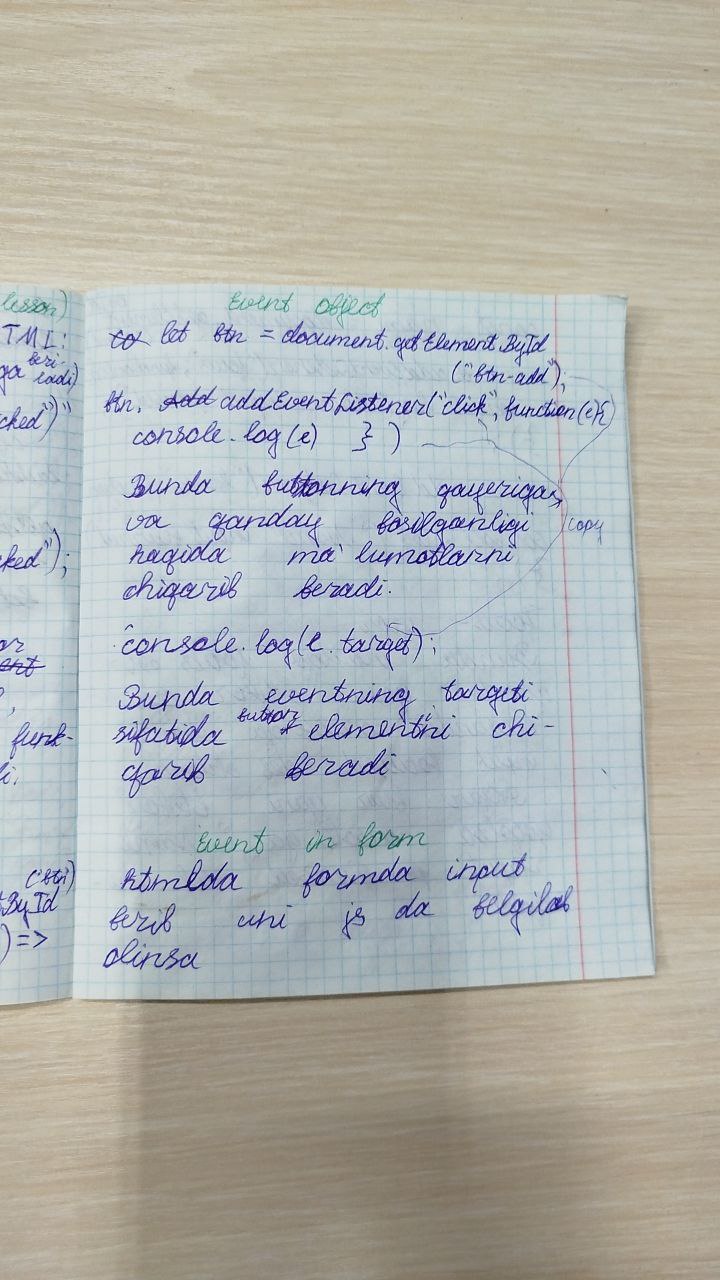 lesson)
TML:
ga beri-
ladi)
cked")"
cked");
ent
funk-
di.
(btn)
ById
) =>
Event Object
let btn = document.getElement.ById
("btn-add");
btn. Add addEventListener("click", function(e){
console.log(e) } )
Bunda buttonning qayeriga
va qanday bosilganligi
copy
haqida ma'lumotlarni
chiqarib beradi.
console.log(e.target);
Bunda eventning targeti
sifatida button elementni chi-
qarib beradi
Event in form
htmlda formda input
berib uni js da belgilab
olinsa